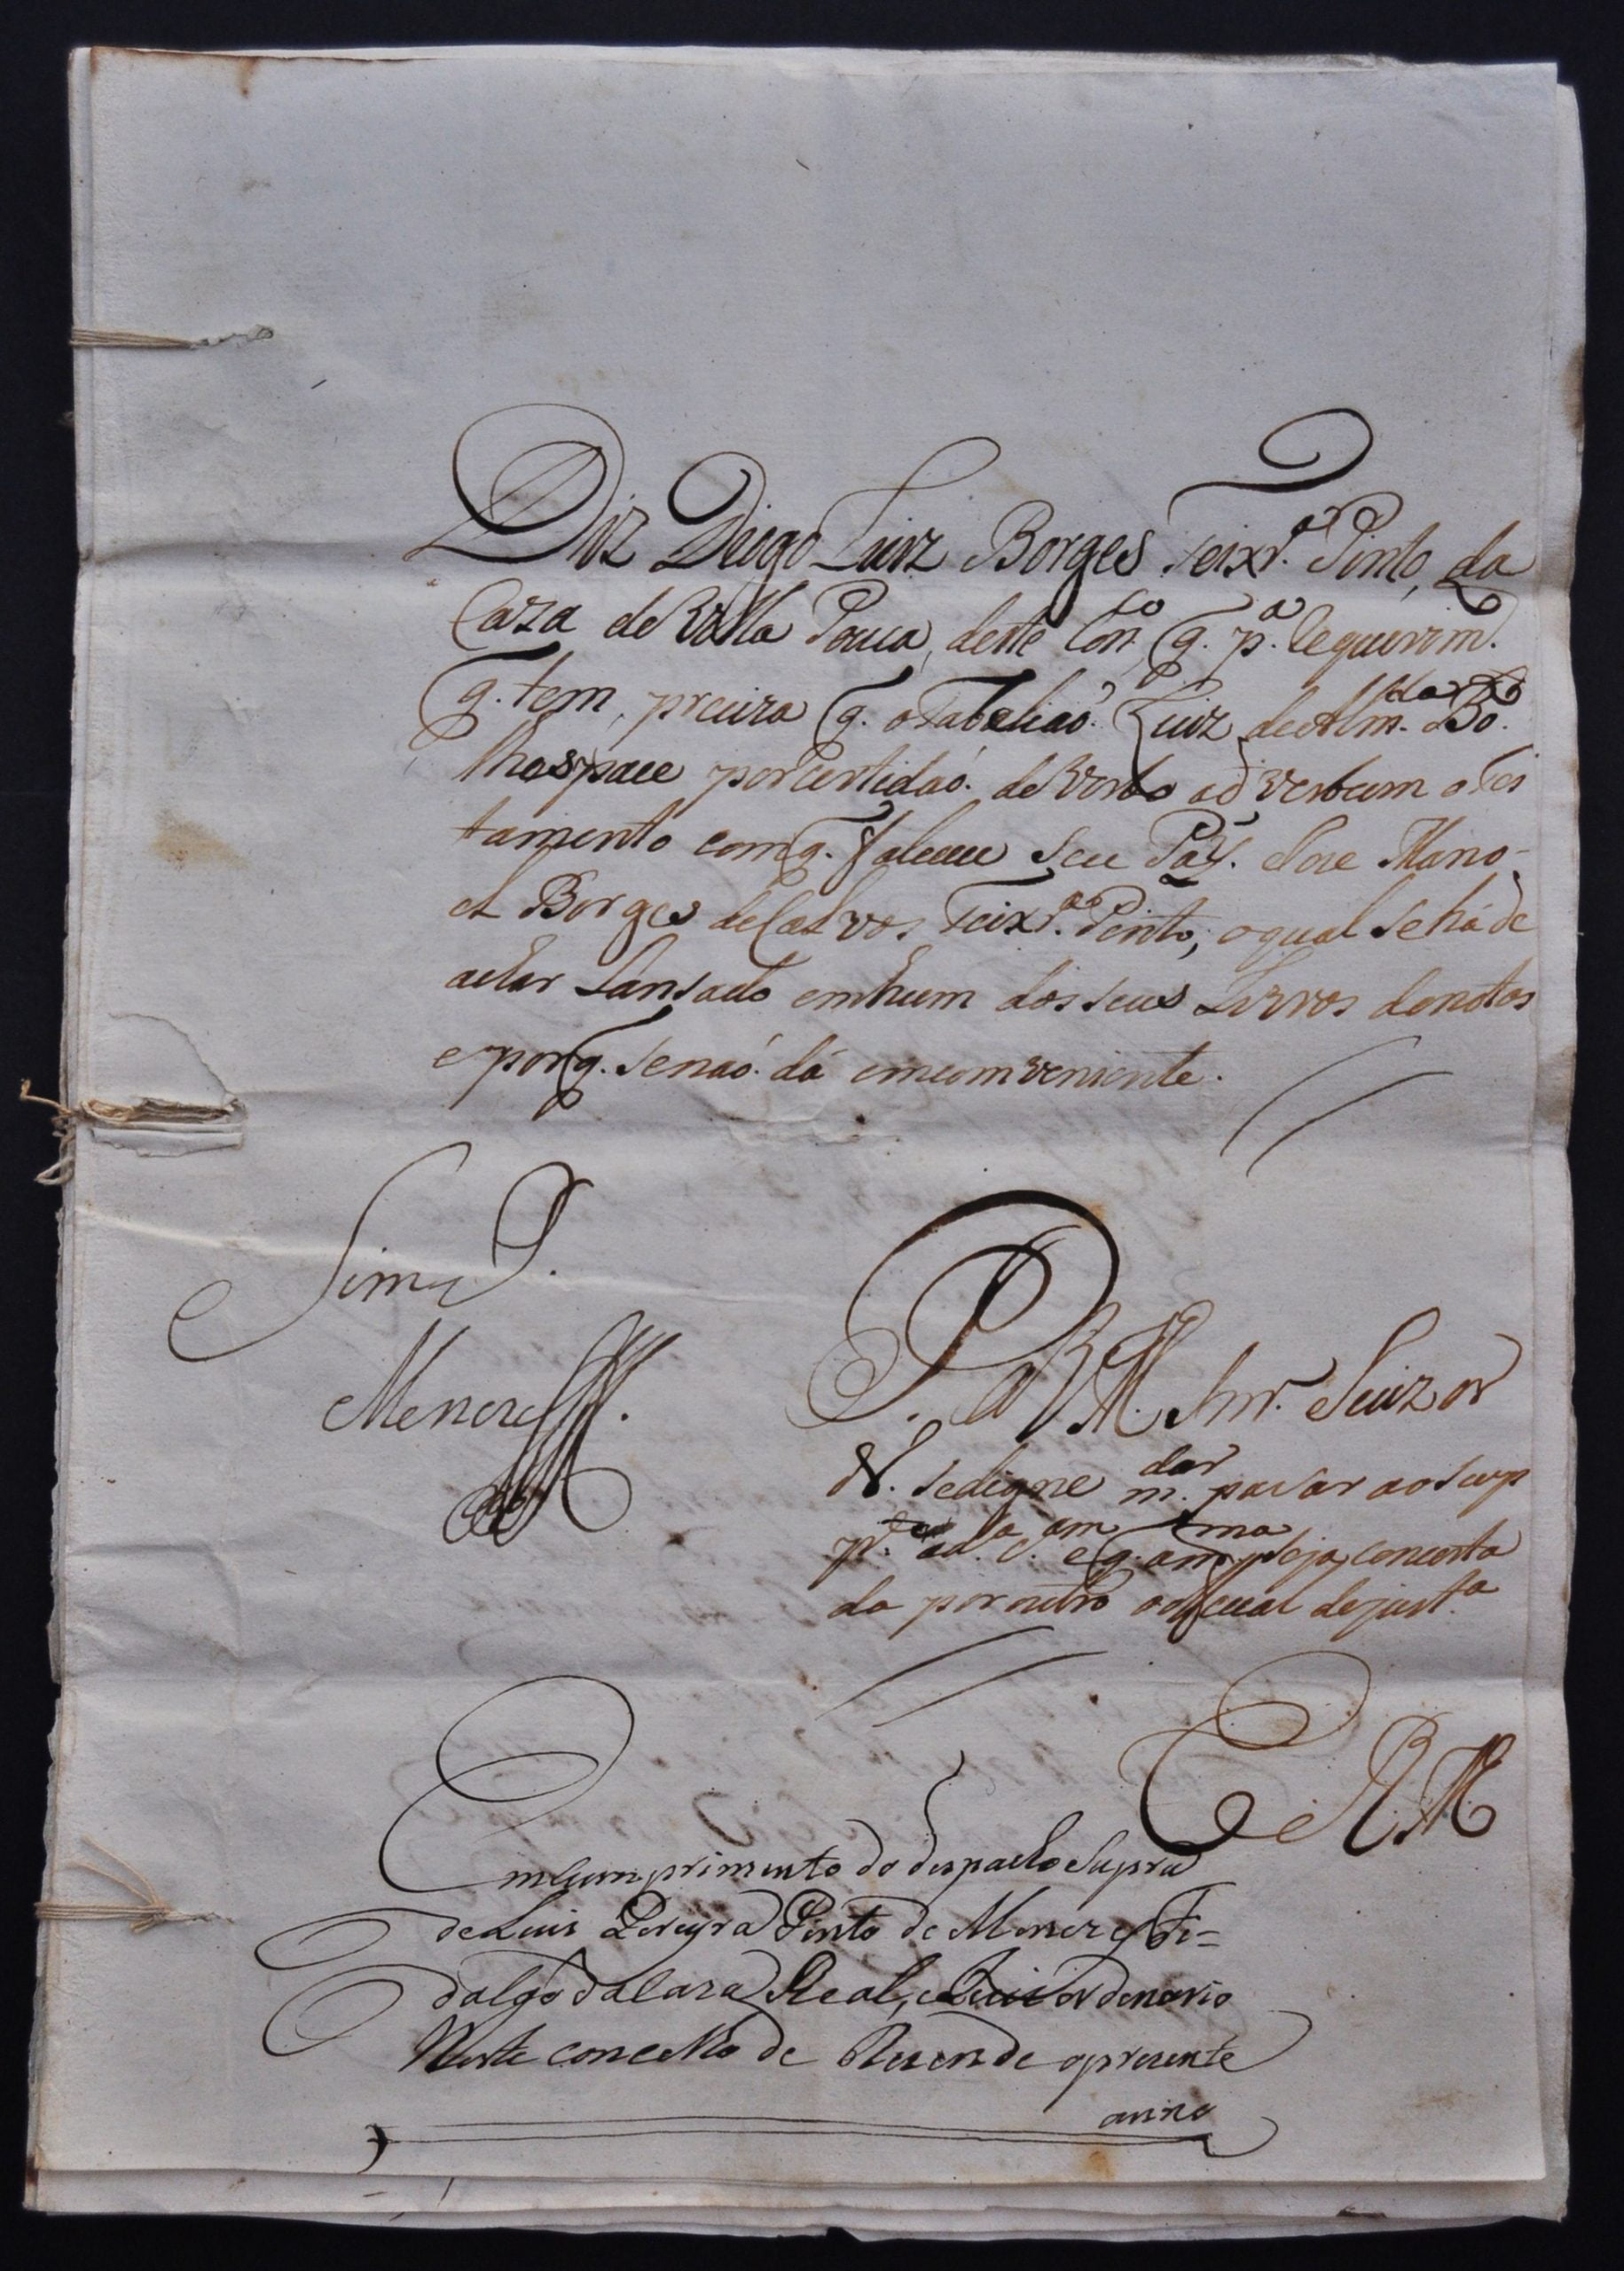 Diz Diogo Luiz Borges Teixr.ª Pinto, da
Caza de Villa Pouca, deste Con.co q. p.ª requerim.to
q. tem, preciza q. o Tabaliaó Luiz de Alm.da Bo
lhas passe por certidaó de verbo ad verbum o Tes
tamento com q. Faleceu seu Pay. Joze Mano-
el Borges de Calvos Teixr.ª Pinto, o qual se há de
achar Lansado em hum dos seus Livros de notas
e por q. se naó dá emcomveniente.
Sim P.
Menezes
P. a V. M. Snr. Juiz or
d.º se digne m.dar passar ao sup
p.te da d.ª e q. a m.ma seja concerta
da por outro oficial de just.ª
E R. M.
Em Cumprimento do despacho Supra
de Luis Pereyra Pinto de Menezes Fi=
dalgo da Caza Real, e Juis ordenario
Neste concelho de Rezende o prezente
anno